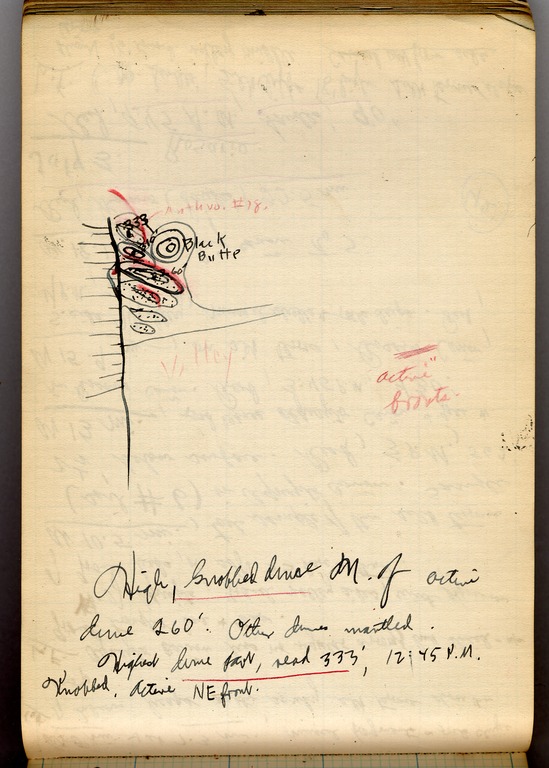 333
Black
Butte
60'
Valley
"active"
fronts.
High, knobbed dune N. of active
dune 260'. Other dunes mantled.
Highest dune part, read 333', 12:45 P.M.
Knobbed, active NE front.